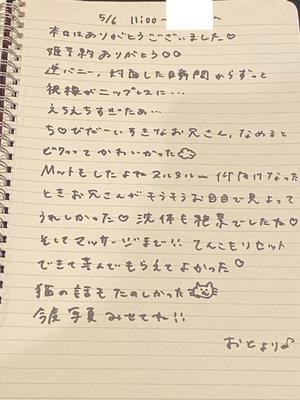 5/6 11:00~
本日はありがとうございました♡
姫予約ありがとう♡♡
逆バニー、対面した瞬間からずっと
視線がニップレスに…
えちえちすぎたぁ…
ち♡びだーいすきなお兄さん、なめると
ビクッってかわいかった
Mットもしたよねヌルヌルm 仰向けなった
ときお兄さんがそうそうお目目で見よって
うれしかった♡ 洗体も絶景でしたね♡
そしてマッサージまで!! てんこもりセット
できて喜んでもらえてよかった♡
猫の話もたのしかった
今度写真みせてね!!
おとより♪